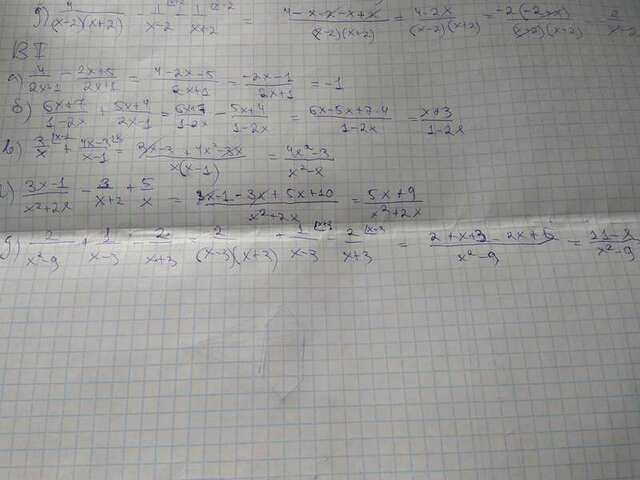 4/(x-2)(x+2) - 1/x-2 - 1/x+2 = 4-x-2-x+2/(x-2)(x+2) = 4-2x/(x-2)(x+2) = -2(-2+x)/(x-2)(x+2)
В I
а) 4/2x+1 - 2x+5/2x+1 = 4-2x-5/2x+1 = -2x-1/2x+1 = -1
б) 6x+7/1-2x + 5x+4/2x-1 = 6x+7/1-2x - 5x+4/1-2x = 6x-5x+7-4/1-2x = x+3/1-2x
в) 3/x + 4x-3/x-1 = 3x-3+4x²-3x/x(x-1) = 4x²-3/x²-x
г) 3x-1/x²+2x - 3/x+2 + 5/x = 3x-1-3x+5x+10/x²+2x = 5x+9/x²+2x
д) 2/x²-9 + 1/x-3 - 2/x+3 = 2/(x-3)(x+3) + 1/x-3 - 2/x+3 = 2+x+3-2x+6/x²-9 = 11-x/x²-9